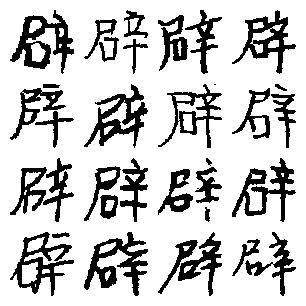 辟 辟 辟 辟
辟 辟 辟 辟
辟 辟 辟 辟
辟 辟 辟 辟